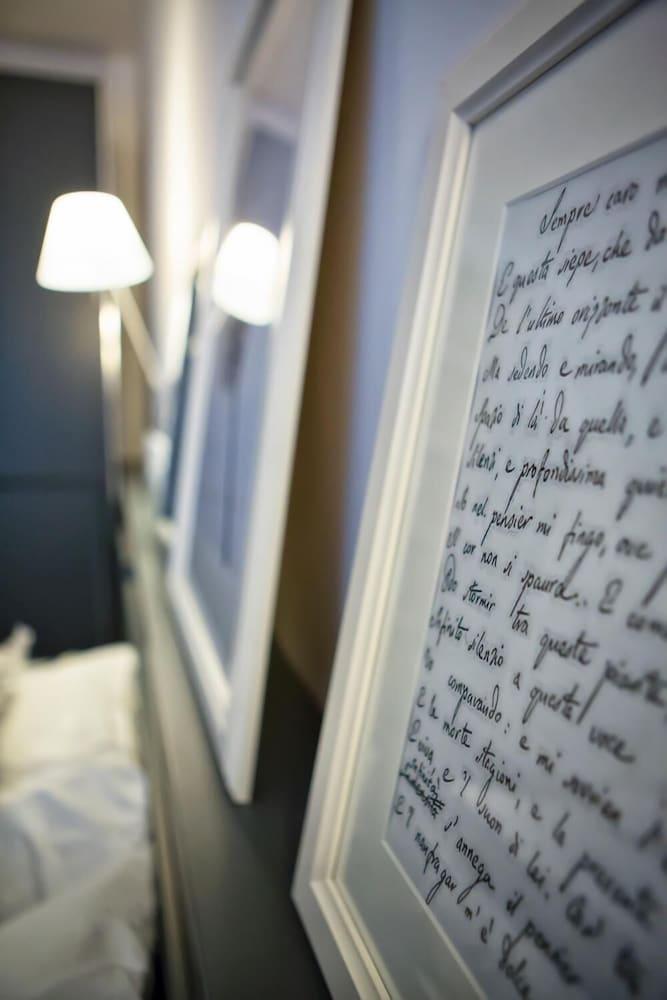 Sempre caro m
E questa siepe, che da
De l'ultimo orizzonte il
Ma sedendo e mirando, l'
Spazio di là da quella, e
Silenzi, e profondissima quie
Io nel pensier mi fingo, ove p
Il cor non si spaura.. E com
Odo stormir tra queste piante
Infinito silenzio a questa voce
Vo comparando: e mi sovvien
E le morte stagioni, e la presente
E viva, e 'l suon di lei. Così tra
s'annega il pensier
E 'l naufragar m'è dolce